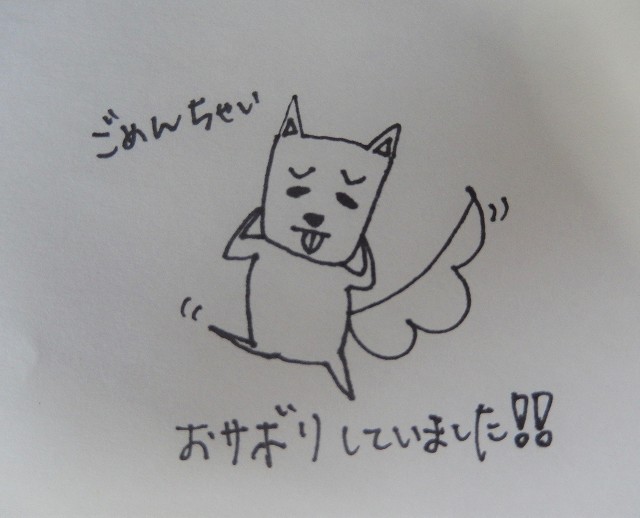 ごめんちゃい
おサボりしていました!!